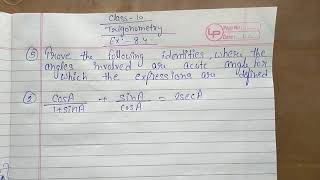 Class-10
Trigonometry
Ex: 8.4
⑤ Prove the following identities, where the
angles involved are acute angle for
which the expressions are defined
② cosA/1+sinA + sinA/cosA = 2secA